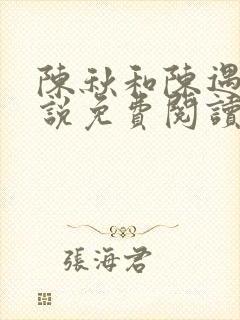 陳秋和陳遇
說免費閱讀
張海君